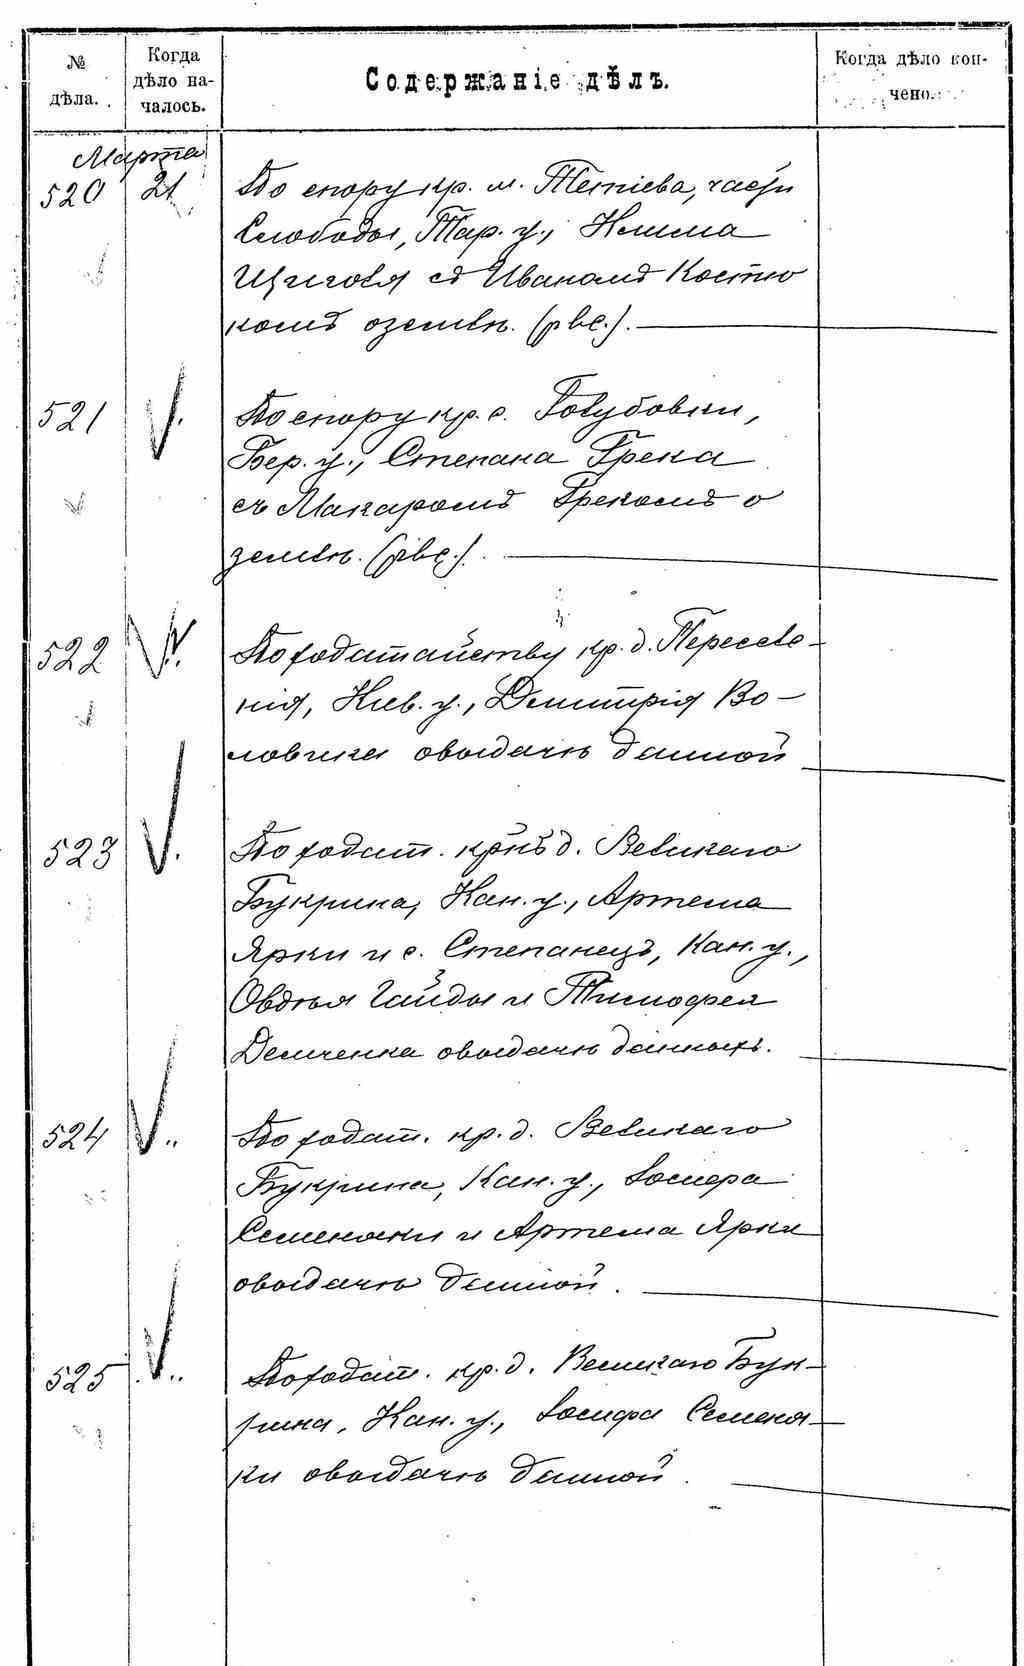 № дѣла.
Когда дѣло на-
чалось.
Содержаніе дѣлъ.
Когда дѣло кон-
чено.
Марта
520 21 По спору кр. м. Тетіева, части
Слободы, Тар. у., Клима
съ Иваномъ Костю
комъ о землѣ. (рвс.).
521 По спору кр. с. Голубовки,
Бер. у., Степана Грека
съ Макаромъ Грекомъ о
землѣ. (рвс.).
522 По ходатайству кр. д. Переселе-
нія, Кіев. у., Димитрія Во-
ловика о выдачѣ данной
523 По ходат. кр-нъ д. Великаго
Букрина, Кан. у., Артема
Ярки и с. Степанецъ, Кан. у.,
Овдѣя Гайды и Тимофея
Демченка о выдачѣ данныхъ.
524 По ходат. кр. д. Великаго
Букрина, Кан. у., Іосифа
Семеняки и Артема Ярки
о выдачѣ данной.
525 По ходат. кр. д. Великаго Бук-
рина, Кан. у., Іосифа Семеня-
ки о выдачѣ данной.